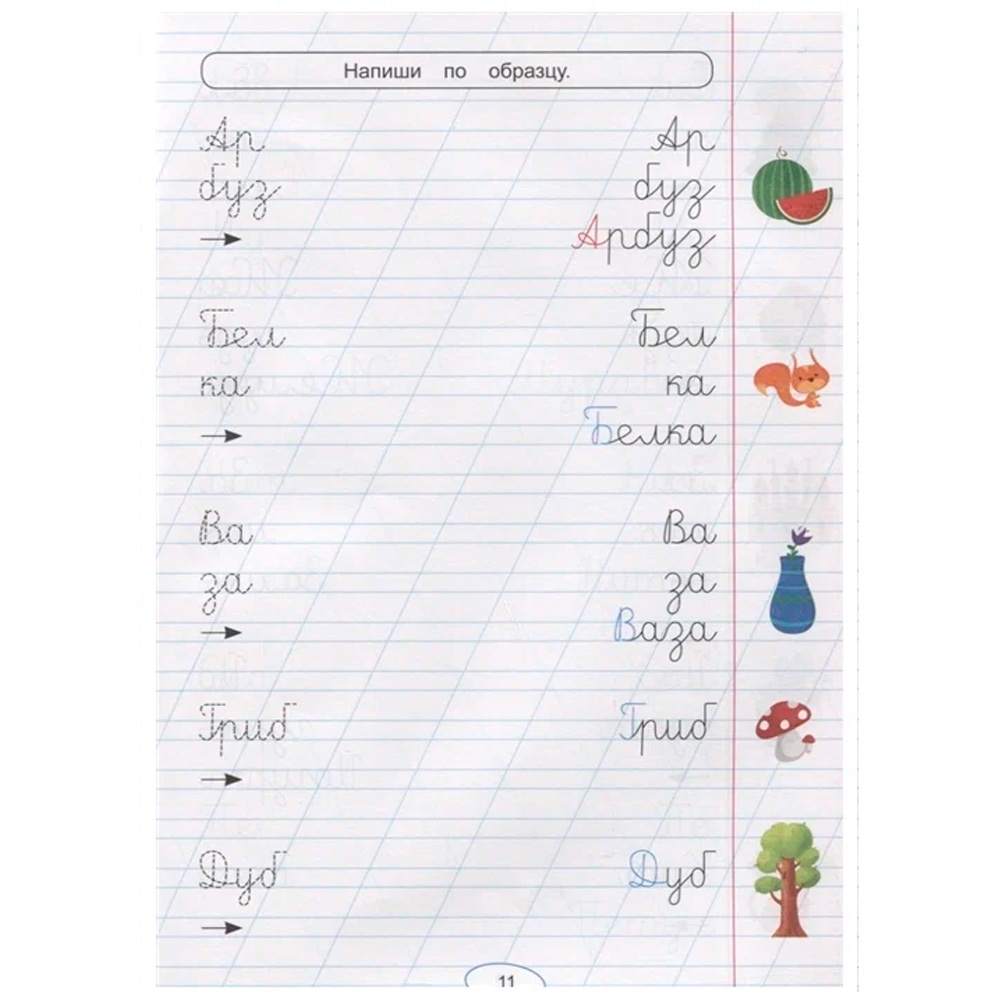 Напиши по образцу.
Ар Ар
буз буз
→ Арбуз
Бел Бел
ка ка
→ Белка
Ва Ва
за за
→ Ваза
Гриб Гриб
→
Дуб Дуб
→
11